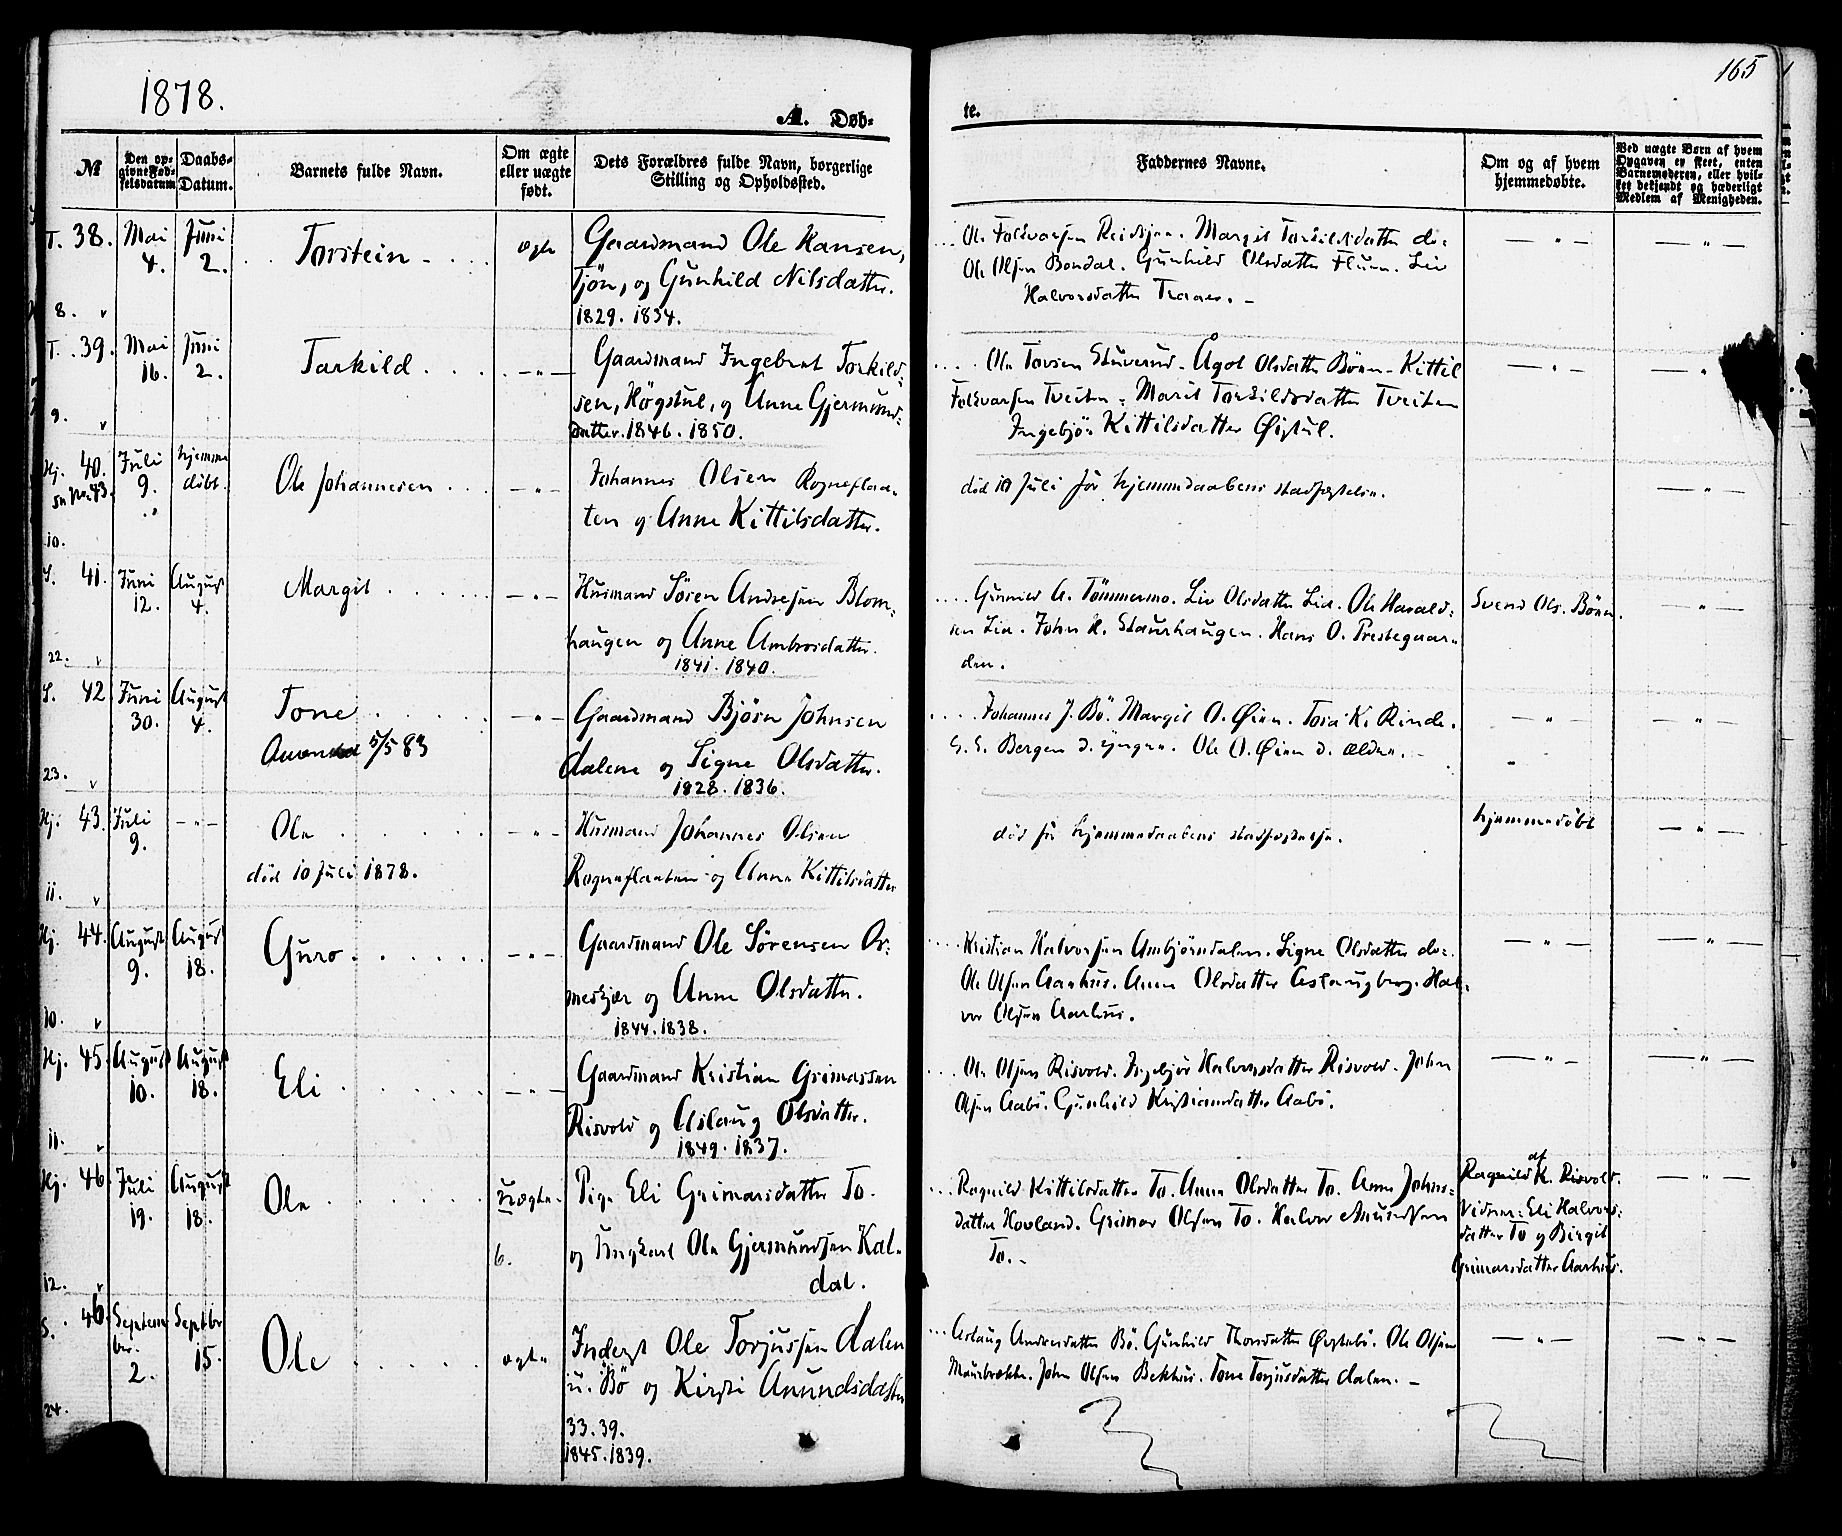 1878.
165
A. Døb-
te.
№
Den op-
givne Fød-
selsdatum
Daabs-
Datum.
Barnets fulde Navn.
Om ægte
eller uægte
født.
Dets Forældres fulde Navn, borgerlige
Stilling og Opholdssted.
Faddernes Navne.
Om og af hvem
hjemmedøbte.
Ved uægte Børn af hvem
Opgaven er skeet, enten
Barnemoderen, eller hvil-
ket bekjendt og hæderligt
Medlem af Menigheden.
T. 38. Mai Juni
4. 2.
Torstein
ægte
Gaardmand Ole Hansen,
Tjøn, og Gunhild Nilsdatter.
1829. 1834.
8.
Ole Folkvarsen Reidsjøn. Margit Torkildsdatter do:
Ole Olsen Bondal. Gunhild Olsdatter Fluum. Liv
Halvorsdatter Traaer. -
T. 39. Mai Juni
16. 2.
Tarkild
Gaardmand Ingebret Torkild-
sen, Høgstul, og Anne Gjermund-
datter. 1846. 1850.
9.
Ole Tovsen Stuverud. Ågot Olsdatter Bøen - Kittil
Folkvarsen Tveiten - Marit Torkildsdatter Tveiten
Ingebjør Kittilsdatter Øistul.
Hj. 40. Juli hjemme
se No. 43. 9. døbt.
Ole Johannesen
Johannes Olsen Rogneflaa-
ten og Anne Kittilsdatter.
10.
død 10 Juli før hjemmedaabens stadfæstelse.
S. 41. Juni August
12. 4.
Margit
Husmand Søren Andresen Blom-
haugen og Anne Ambrosdatter.
1841. 1840.
22.
Gunnild A. Tömmermo. Liv Olsdatter Lia. Ole Harald-
sen Lia. John H. Staurhaugen. Hans O. Prestegaar-
den.
Svend Ols. Bøen.
S. 42 Juni August
30. 4.
Tone
5/5 83
Gaardmand Bjørn Johnsen
Dalene og Signe Olsdatter.
1828. 1836.
23.
Johannes J. Bö. Margit O. Øien. Tora K. Rinde.
Bergen d. yngre. Ole O. Øien d. ældre. -
Hj. 43. Juli
9.
Ole
død 10 Juli 1878.
Husmand Johannes Olsen
Rogneflaaten og Anne Kittilsdatter
11.
død før hjemmedaabens stadfæstelse.
hjemmedöbt
Hj. 44. August August
9. 18.
Guro
Gaardmand Ole Sørensen Or-
meskjær og Anne Olsdatter.
1844. 1838.
10.
Kristian Halvorsen Ambjörndalen. Signe Olsdatter do:
Ole Olsen Aarhus. Anne Olsdatter Aslaugberg. Hal-
vor Olsen Aarhus.
Hj. 45. August August
10. 18.
Eli
Gaardmand Kristian Grimarsen
Risvold og Aslaug Olsdatter.
1849. 1837.
11.
Ole Olsen Risvold. Ingebjör Halvorsdatter Risvold. John
Olsen Aabö. Gunhild Kristiansdatter Aabö.
Hj. 46. Juli August
19. 18.
Ole
uægte.
6.
Pige Eli Grimarsdatter To.
og Ungkarl Ole Gjermundsen Kal-
dal.
12.
Ragnild Kittilsdatter To. Anne Olsdatter To. Anne Johns-
datter Hovland. Grimar Olsen To. Halvor Amundsen
To. -
af
Ragnild K. Risvold.
Vidner: Eli Halvors-
datter To og Birgit
Grimarsdatter Aarhus.
S. 46 Septem Septbr
ber. 15.
2.
Ole
ægte
Inderst Ole Torjussen Dalen
u. Bö og Kirsti Anundsdatter
33. 39.
1845. 1839.
24.
Aslaug Andersdatter Bö. Gunhild Thorsdatter Øvstebö. Ole Olsen
Maurbrække. John Olsen Bekhus. Tone Torjusdatter Dalen. -